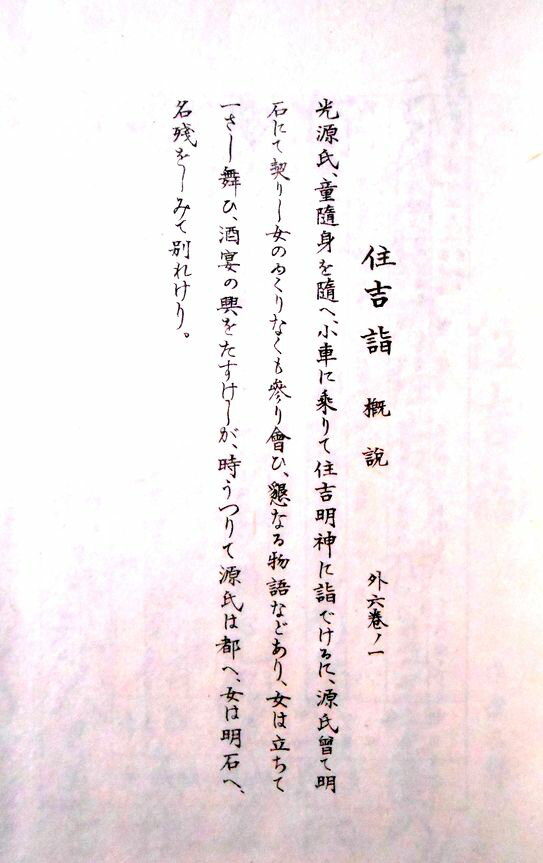 住吉詣 概說 外六卷ノ一
光源氏、童隨身を隨へ、小車に乘りて住吉明神に詣でけるに、源氏曾て明
石にて契りし女のゆくりなくも參り會ひ、懇なる物語などあり、女は立ちて
一さし舞ひ、酒宴の興をたすけしが、時うつりて源氏は都へ、女は明石へ、
名殘をしみて別れけり。